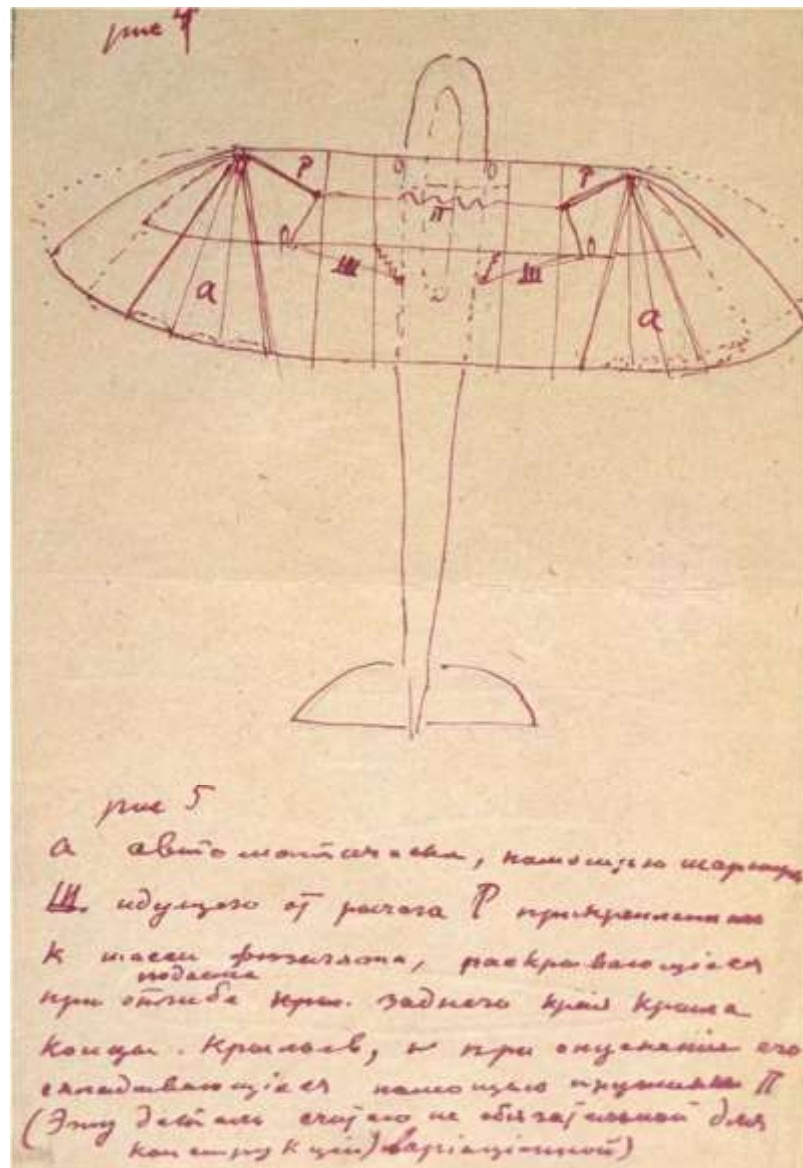 рис 4
Р
Р
П
Ш
Ш
а
а
рис 5
а автоматически, помощью шарнира
Ш. идущего от рычага Р прикрепленным
к шасси фюзеляжа, раскрывающiеся
подъеме
при отгибе заднего края крыла
концы крыльев, и при опускании его
складывающiеся помощью пружины П
(Эту деталь считаю не обязательной для
конструкцiи) варiацiонной)